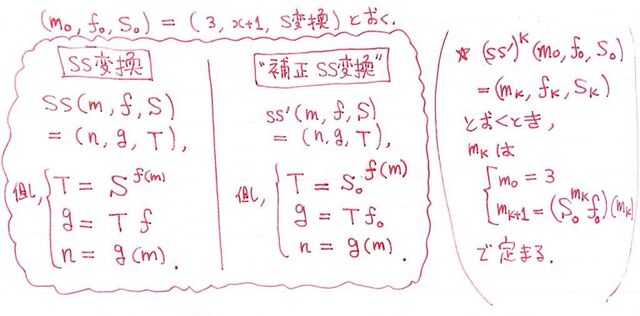 (m₀, f₀, S₀) = (3, x+1, S変換) とおく.
SS変換
SS(m, f, S)
= (n, g, T),
但し, { T = S^{f(m)}
g = T f
n = g(m).
"補正 SS変換"
SS'(m, f, S)
= (n, g, T),
但し, { T = S₀^{f(m)}
g = T f₀
n = g(m).
★ (SS')^K (m₀, f₀, S₀)
= (m_K, f_K, S_K)
とおくとき,
m_K は
{ m₀ = 3
m_{K+1} = (S₀^{m_K} f₀)(m_K)
で定まる.